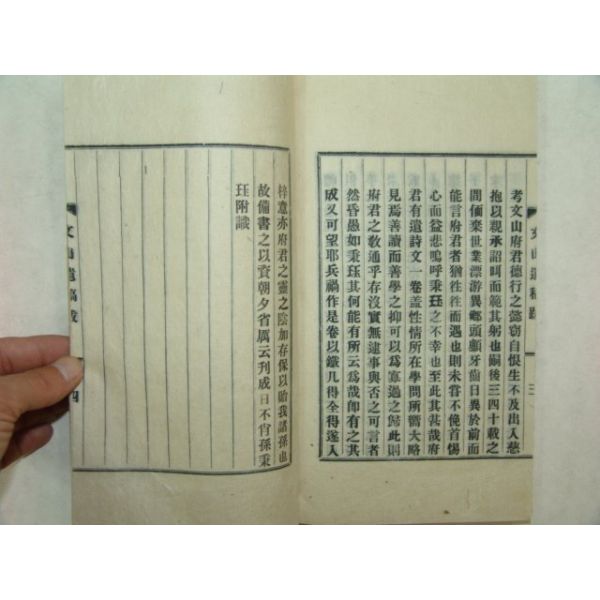 考文山府君德行之懿窃自恨生不及出入慈
抱以親承詔呌而範其躬也嗣後三四十載之
間価棄世業漂游異鄕頭顱牙齒日異於前而
能言府君者猶徃徃而遇也則未甞不俛首惕
心而益悲嗚呼秉珏之不幸也至此其甚哉府
君有遺詩文一卷盖性情所在學問所嚮大略
見焉善讀而善學之抑可以爲寡過之歸此則
府君之敎通乎存沒實無逮事與否之可言者
然昏愚如秉珏其何能有所云爲哉卽有之其
成又可望耶兵禍作是卷以鐵几得全得遂入
文山遺稿跋
三
梓意亦府君之靈之陰加存保以貽我諸孫也
故備書之以資朝夕省厲云刋成日不肖孫秉
珏附識
文山遺稿跋
四